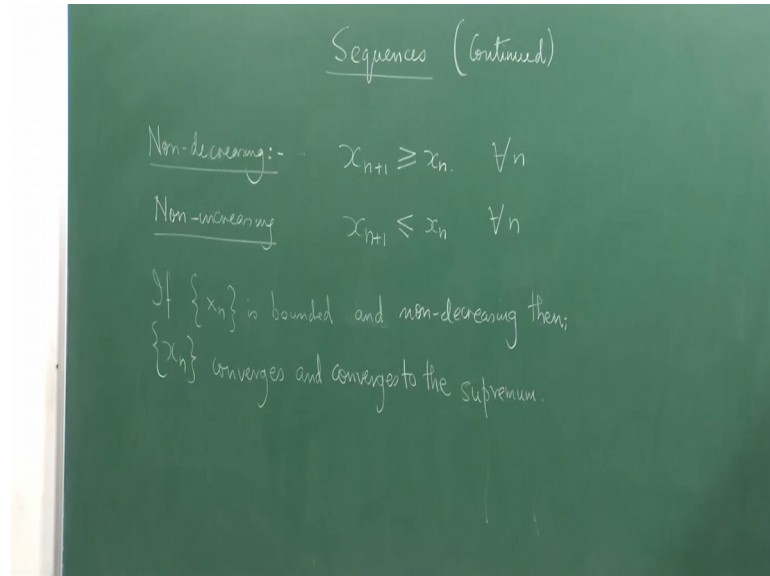 Sequences (Continued)
Non-decreasing:- xₙ₊₁ ⩾ xₙ. ∀n
Non-increasing xₙ₊₁ ⩽ xₙ ∀n
If {xₙ} is bounded and non-decreasing then;
{xₙ} converges and converges to the supremum.